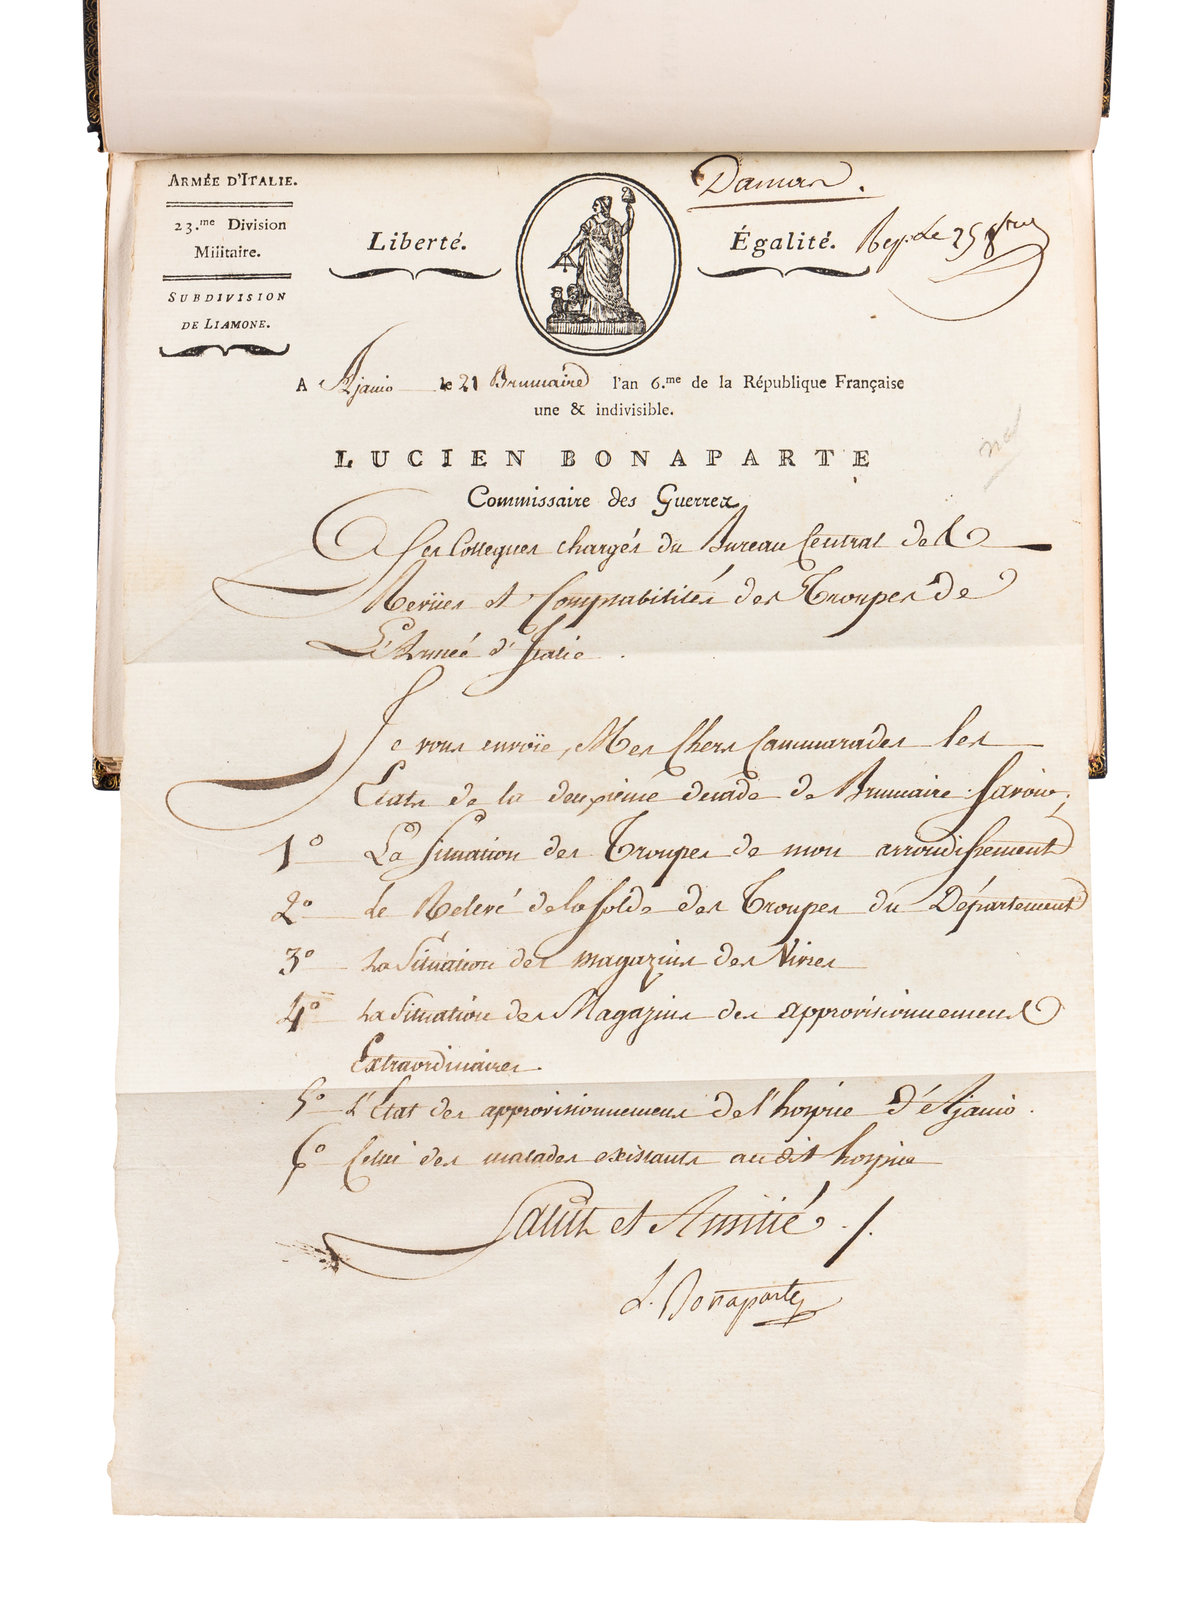 ARMÉE D'ITALIE.
23.me Division
Militaire.
SUBDIVISION
DE LIAMONE.
Liberté.
Égalité.
Rep. le 25
A Ajaccio le 21 Brumaire l'an 6.me de la République Française
une & indivisible.
LUCIEN BONAPARTE
Commissaire des Guerres
A Ses Collegues chargés du Bureau Central des
Revües et Comptabilités des Troupes de
L'Armée d'Italie.
Je vous envoïe, Mes Chers Cammarades les
Etats de la deuxième decade de Brumaire Savoir;
1° La Situation des Troupes de mon arrondissement
2° Le Relevé de la solde des Troupes du Département
3° La Situation des magazins des Vivres
4° La Situation des Magazins des approvisionnemens
Extraordinaires.
5° L'Etat des approvisionnemens de l'hospice d'Ajaccio.
6° Celui des malades existants au dit hospice
Salut et Amitié ./.
L. Bonaparte